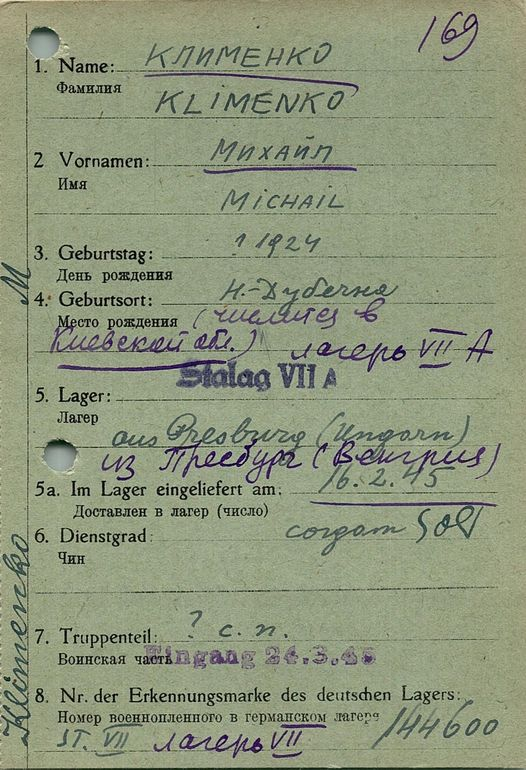 169
1. Name: КЛИМЕНКО
Фамилия
KLIMENKO
2 Vornamen: МИХАЙЛ
Имя
MICHAIL
3. Geburtstag: ? 1924
День рождения
4. Geburtsort: Н.-Дубечна
Место рождения (числится в
Киевской обл.) лагерь VII А
Stalag VII A
5. Lager:
Лагер
aus Presburg (Ungarn)
из Пресбурга (Венгрия)
5a. Im Lager eingeliefert am: 16.2.45
Доставлен в лагер (число)
6. Dienstgrad: солдат Sold
Чин
7. Truppenteil: ? с. п.
Воинская часть
Eingang 24.3.45
8. Nr. der Erkennungsmarke des deutschen Lagers:
Номер военнопленного в германском лагере
ST. VII лагерь VII 144600
Klimenko M